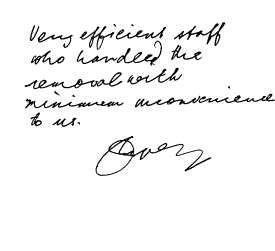 Very efficient staff
who handled the
removal with
minimum inconvenience
to us.